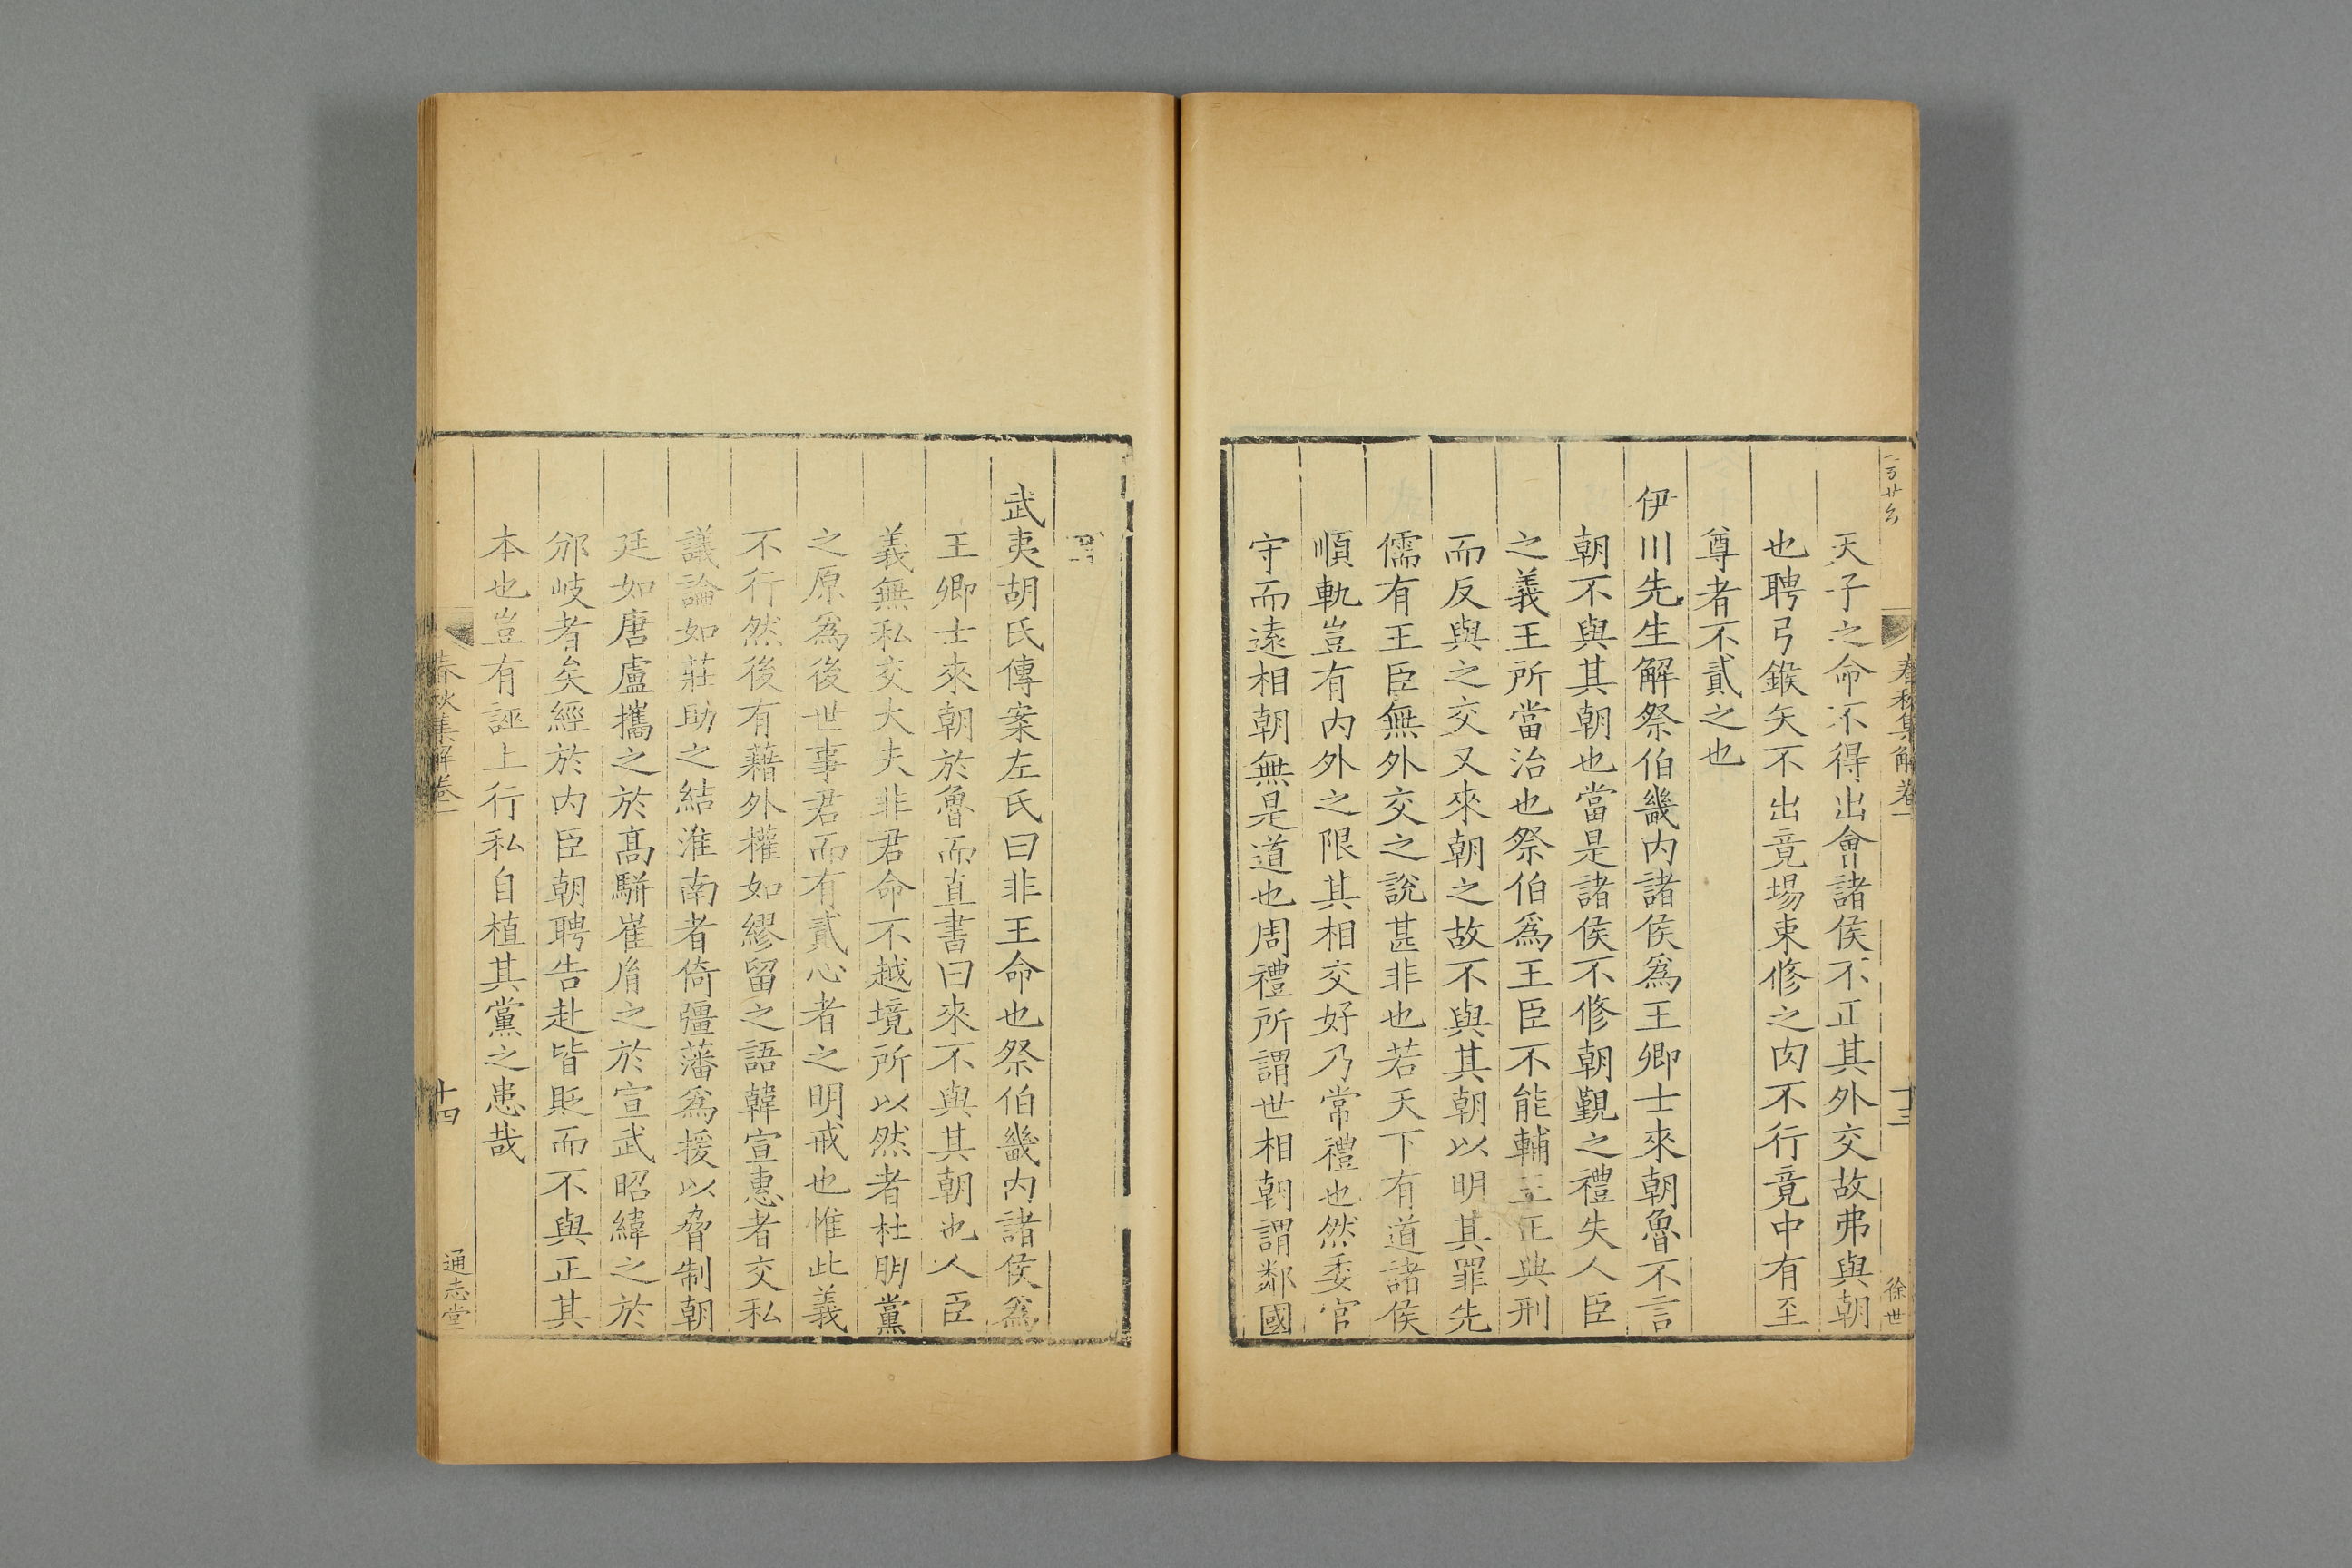 春秋集解卷一
十三
徐世
天子之命不得出會諸侯不正其外交故弗與朝
也聘弓鍭矢不出竟場束脩之肉不行竟中有至
尊者不貳之也
伊川先生解祭伯畿內諸侯爲王卿士來朝魯不言
朝不與其朝也當是諸侯不修朝覲之禮失人臣
之義王所當治也祭伯爲王臣不能輔王正典刑
而反與之交又來朝之故不與其朝以明其罪先
儒有王臣無外交之說甚非也若天下有道諸侯
順軌豈有內外之限其相交好乃常禮也然委官
守而遠相朝無是道也周禮所謂世相朝謂鄰國
武夷胡氏傳案左氏曰非王命也祭伯畿內諸侯爲
王卿士來朝於魯而直書曰來不與其朝也人臣
義無私交大夫非君命不越境所以然者杜朋黨
之原爲後世事君而有貳心者之明戒也惟此義
不行然後有藉外權如繆留之語韓宣惠者交私
議論如莊助之結淮南者倚彊藩爲援以脅制朝
廷如唐盧攜之於高駢崔胤之於宣武昭緯之於
邠岐者矣經於內臣朝聘告赴皆貶而不與正其
本也豈有誣上行私自植其黨之患哉
春秋集解卷一
十四
通志堂